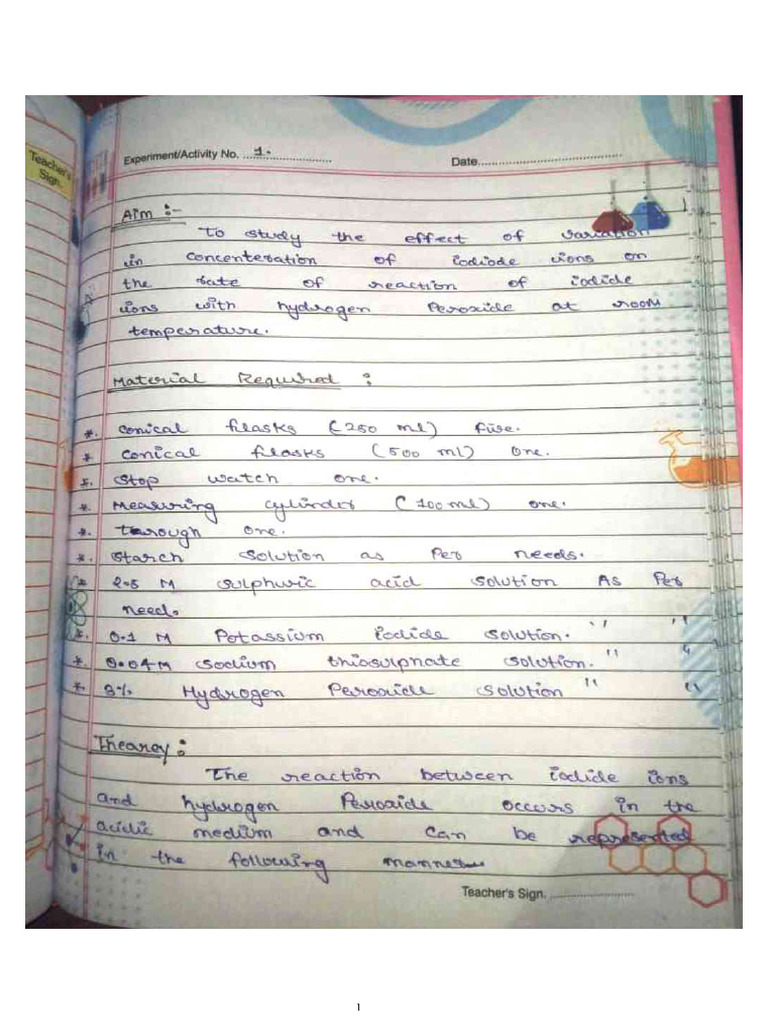 Teacher's
Sign.
Experiment/Activity No. 1.
Date
Aim :-
To study the effect of variation
in concenteration of iodiode ions on
the rate of reaction of iodide
ions with hydrogen Peroxide at room
temperature.
Material Required :
*. conical filasks (250 ml) five.
* conical filasks (500 ml) One.
*. Stop watch one.
*. Measuring cylinder (100ml) one.
*. through one.
*. Starch solution as Per needs.
* 2.5 M sulphuric acid solution As Per
need.
*. 0.1 M Potassium iodide solution. " "
*. 0.04M sodium thiosulphate solution. " "
*. 3% Hydrogen Peroxide solution " "
Thearey :
The reaction between iodide ions
and hydrogen Peroxide occurs in the
acidic medium and can be represented
in the following manner
Teacher's Sign.
1